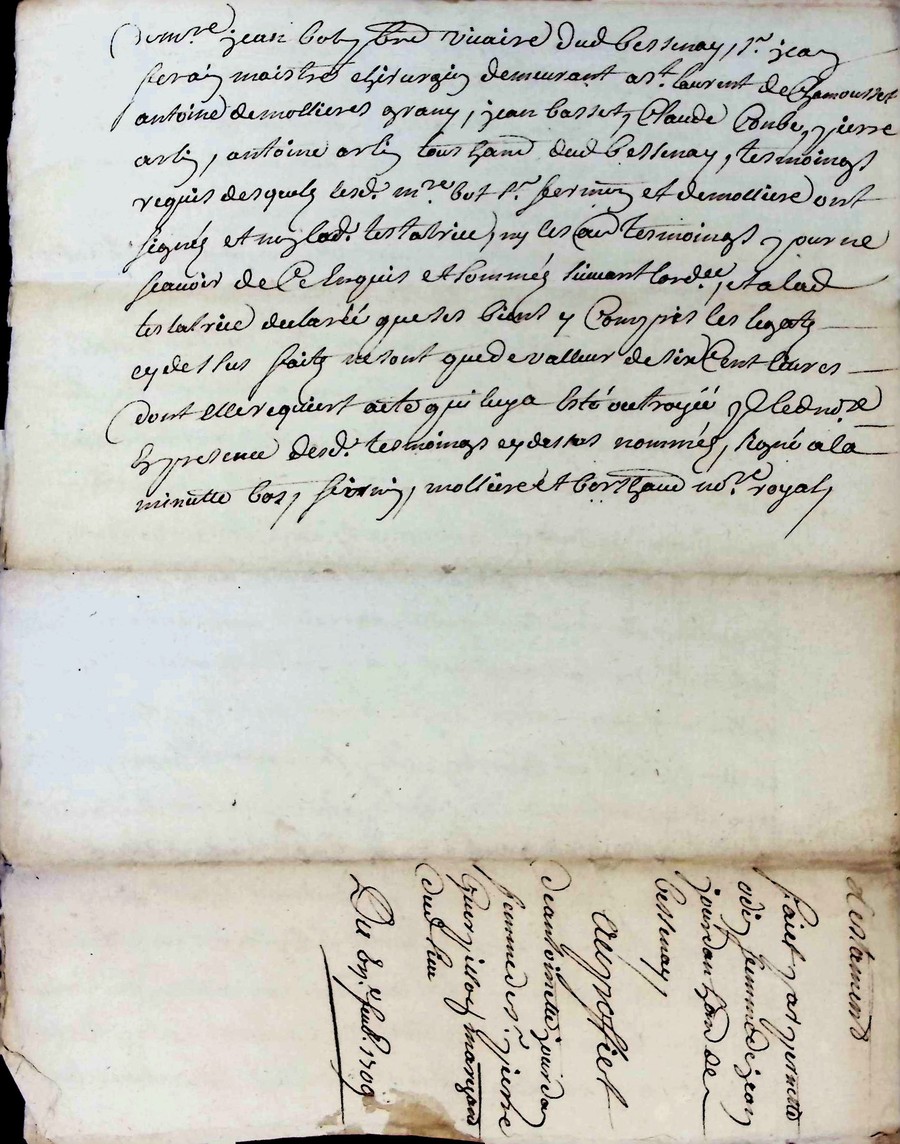 de m.re jean bot pbre vicaire dud bessenay, s.r jean
fermin maistre chirurgien demeurant a s.t laurent de Chamousset
antoine demollieres grang, jean basset, Claude Combe, pierre
arlin, antoine arlin tous hand dud bessenay, tesmoings
requis desquels lesd. m.re bot s.r fermin et demolliere ont
signés et non lad. testatrice, ny les au tesmoings pour ne
scavoir de Ce Enquis et sommés suivant lord.ce, et a lad
testatrice declaréé que ses biens y Compris les legatz
cy dessus faitz ne sont que de valleur de six Cent livres
dont elle requiert acte qui luy a Esté octroyéé p le d no.re
En presence desd. tesmoings cy dessus nommés, signé a la
minutte bot, fermin, molliere et berthaud no.re royal,
testament
faict par pernette
odin femme de jean
jourdan hand de
bessenay
au proffiet
de anthoinette jourdan
femme de s.r pierre
marchand
dud lieu
Du Feb. 1709